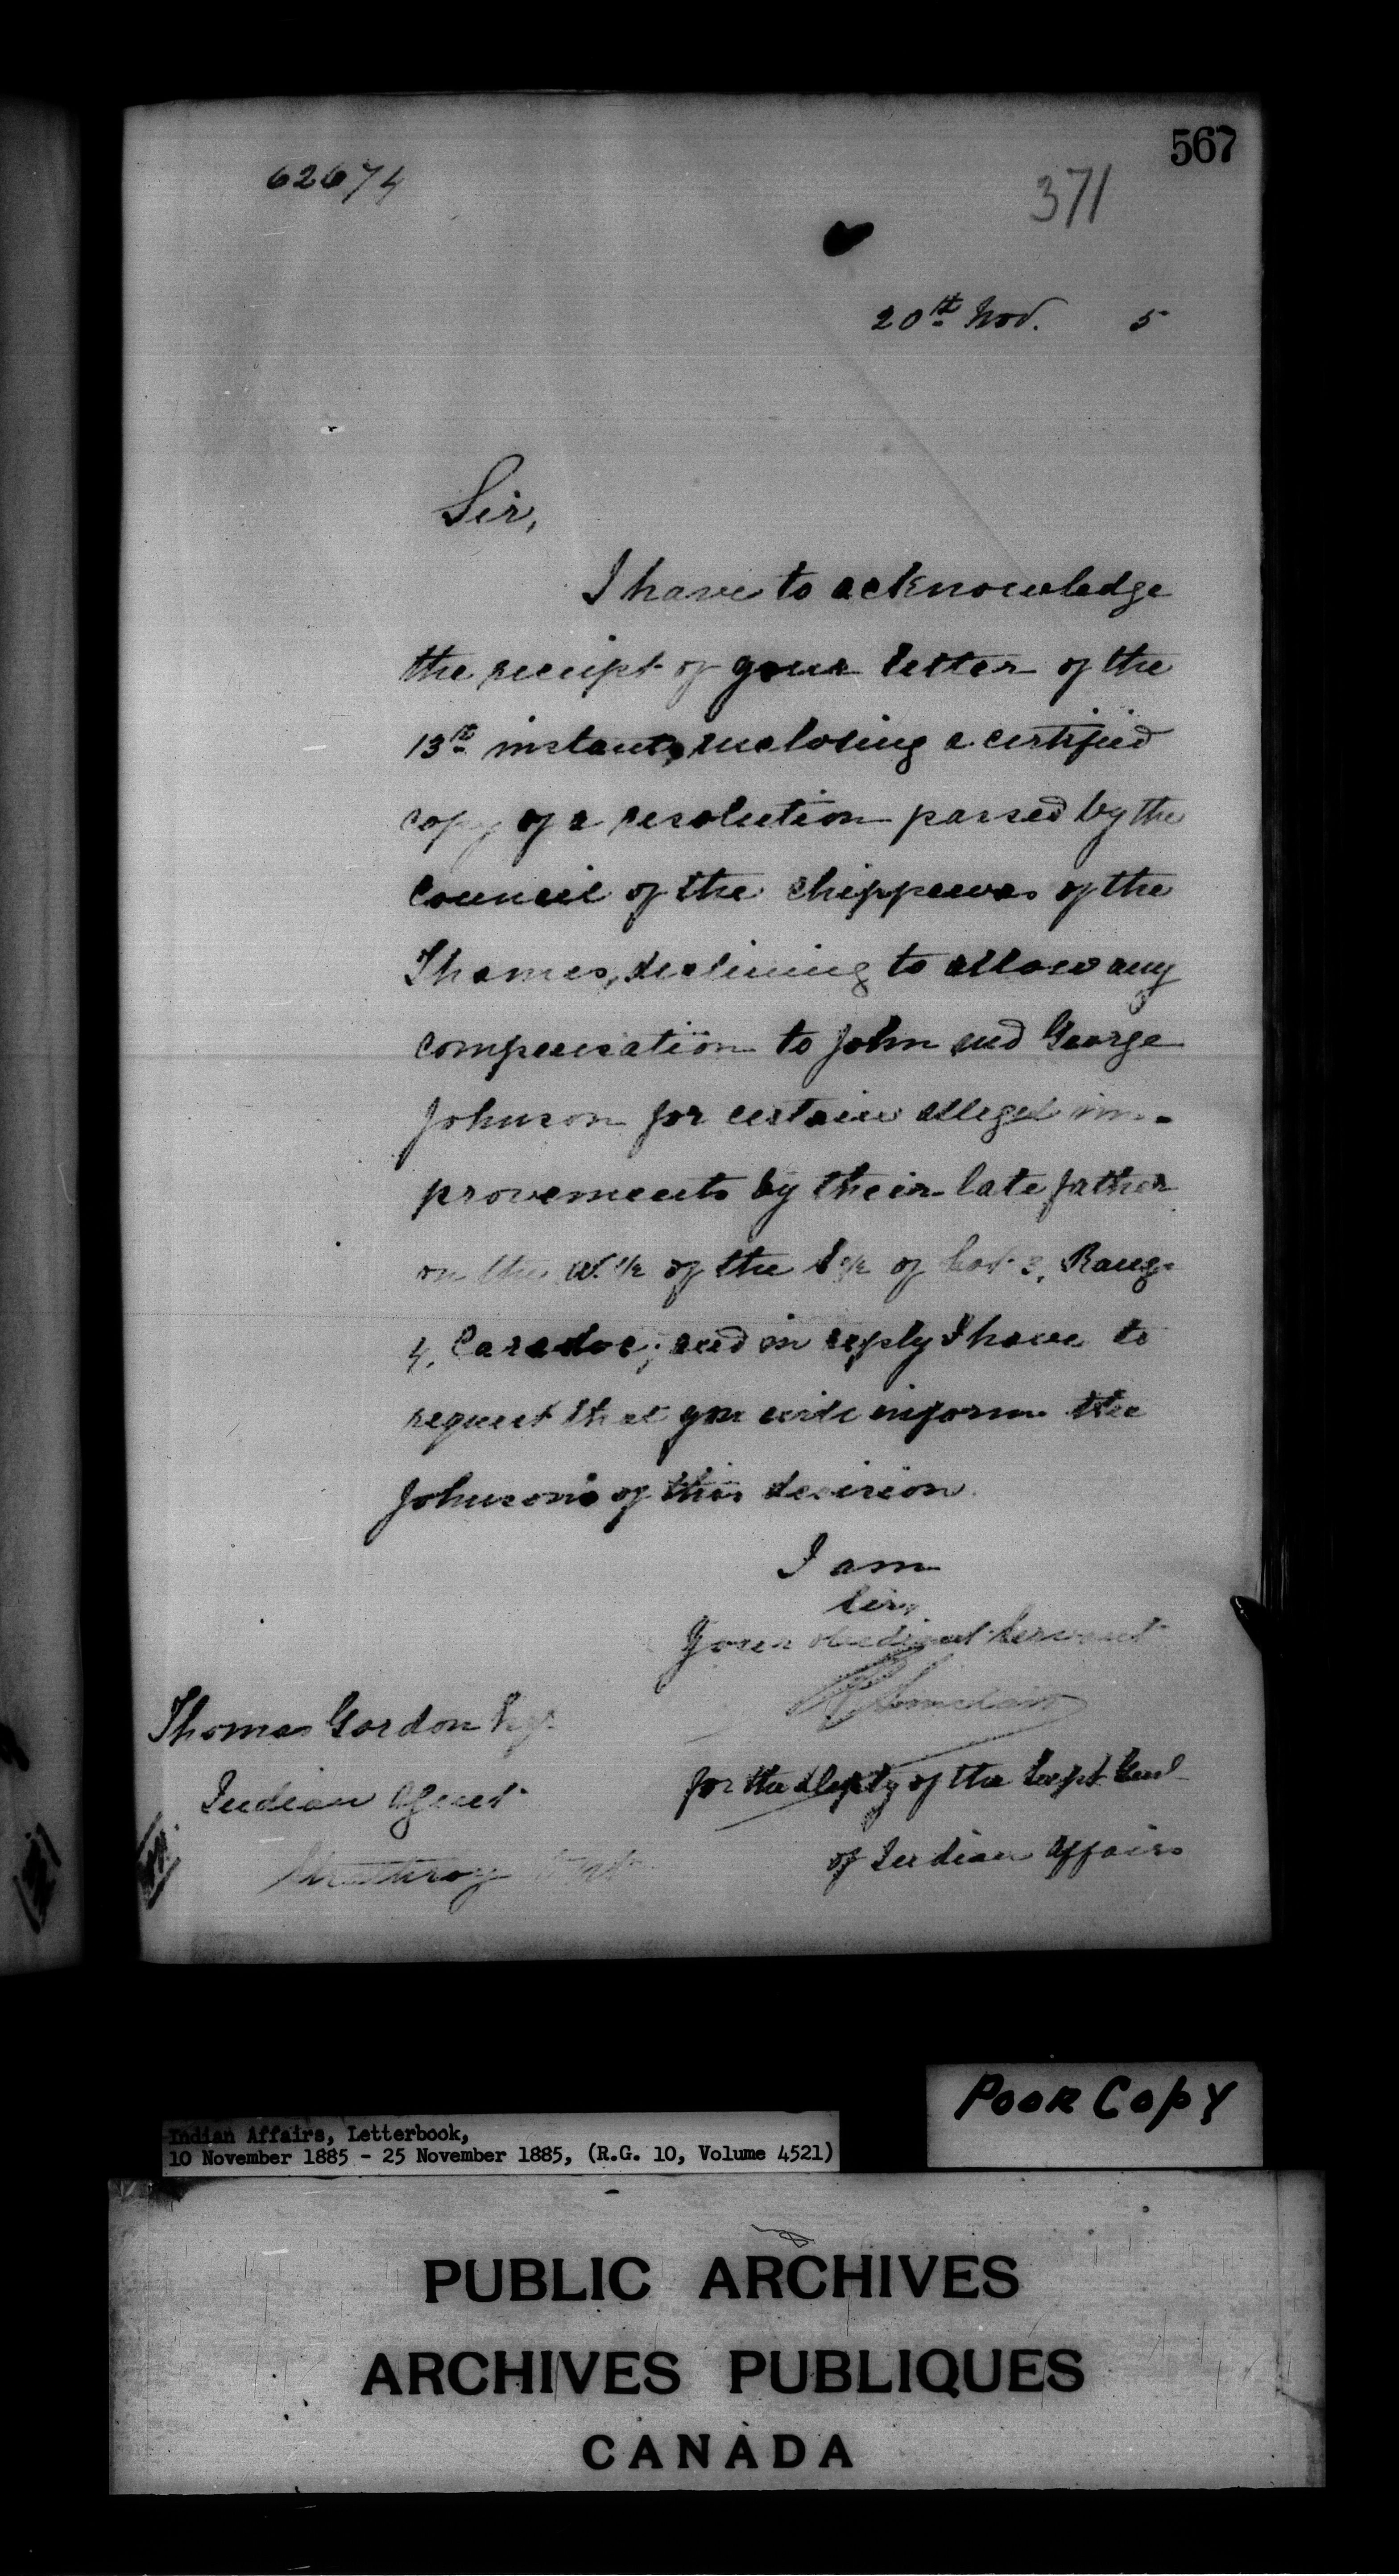 567
62674
371
20th Nov. 5
Sir,
I have to acknowledge
the receipt of your letter of the
13th instant, enclosing a certified
copy of a resolution passed by the
Council of the Chippewas of the
Thames, declining to allow any
compensation to John and George
Johnson for certain alleged im-
provements by their late father
on the W. 1/2 of the 1/2 of Lot 3, Range
4, Caradoc; and in reply I have to
request that you will inform the
Johnsons of this decision.
I am
Sir,
Your obedient Servant
R Sinclair
Thomas Gordon Esq.
for the Depty of the Supt. Genl
Indian Agent
of Indian Affairs
Strathroy Ont.
POOR COPY
Indian Affairs, Letterbook,
10 November 1885 - 25 November 1885, (R.G. 10, Volume 4521)
PUBLIC ARCHIVES
ARCHIVES PUBLIQUES
CANADA